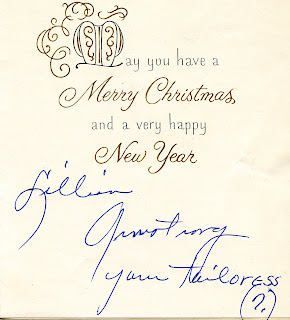 May you have a
Merry Christmas
and a very happy
New Year
Lillian
Armstrong
your tailoress
(?)